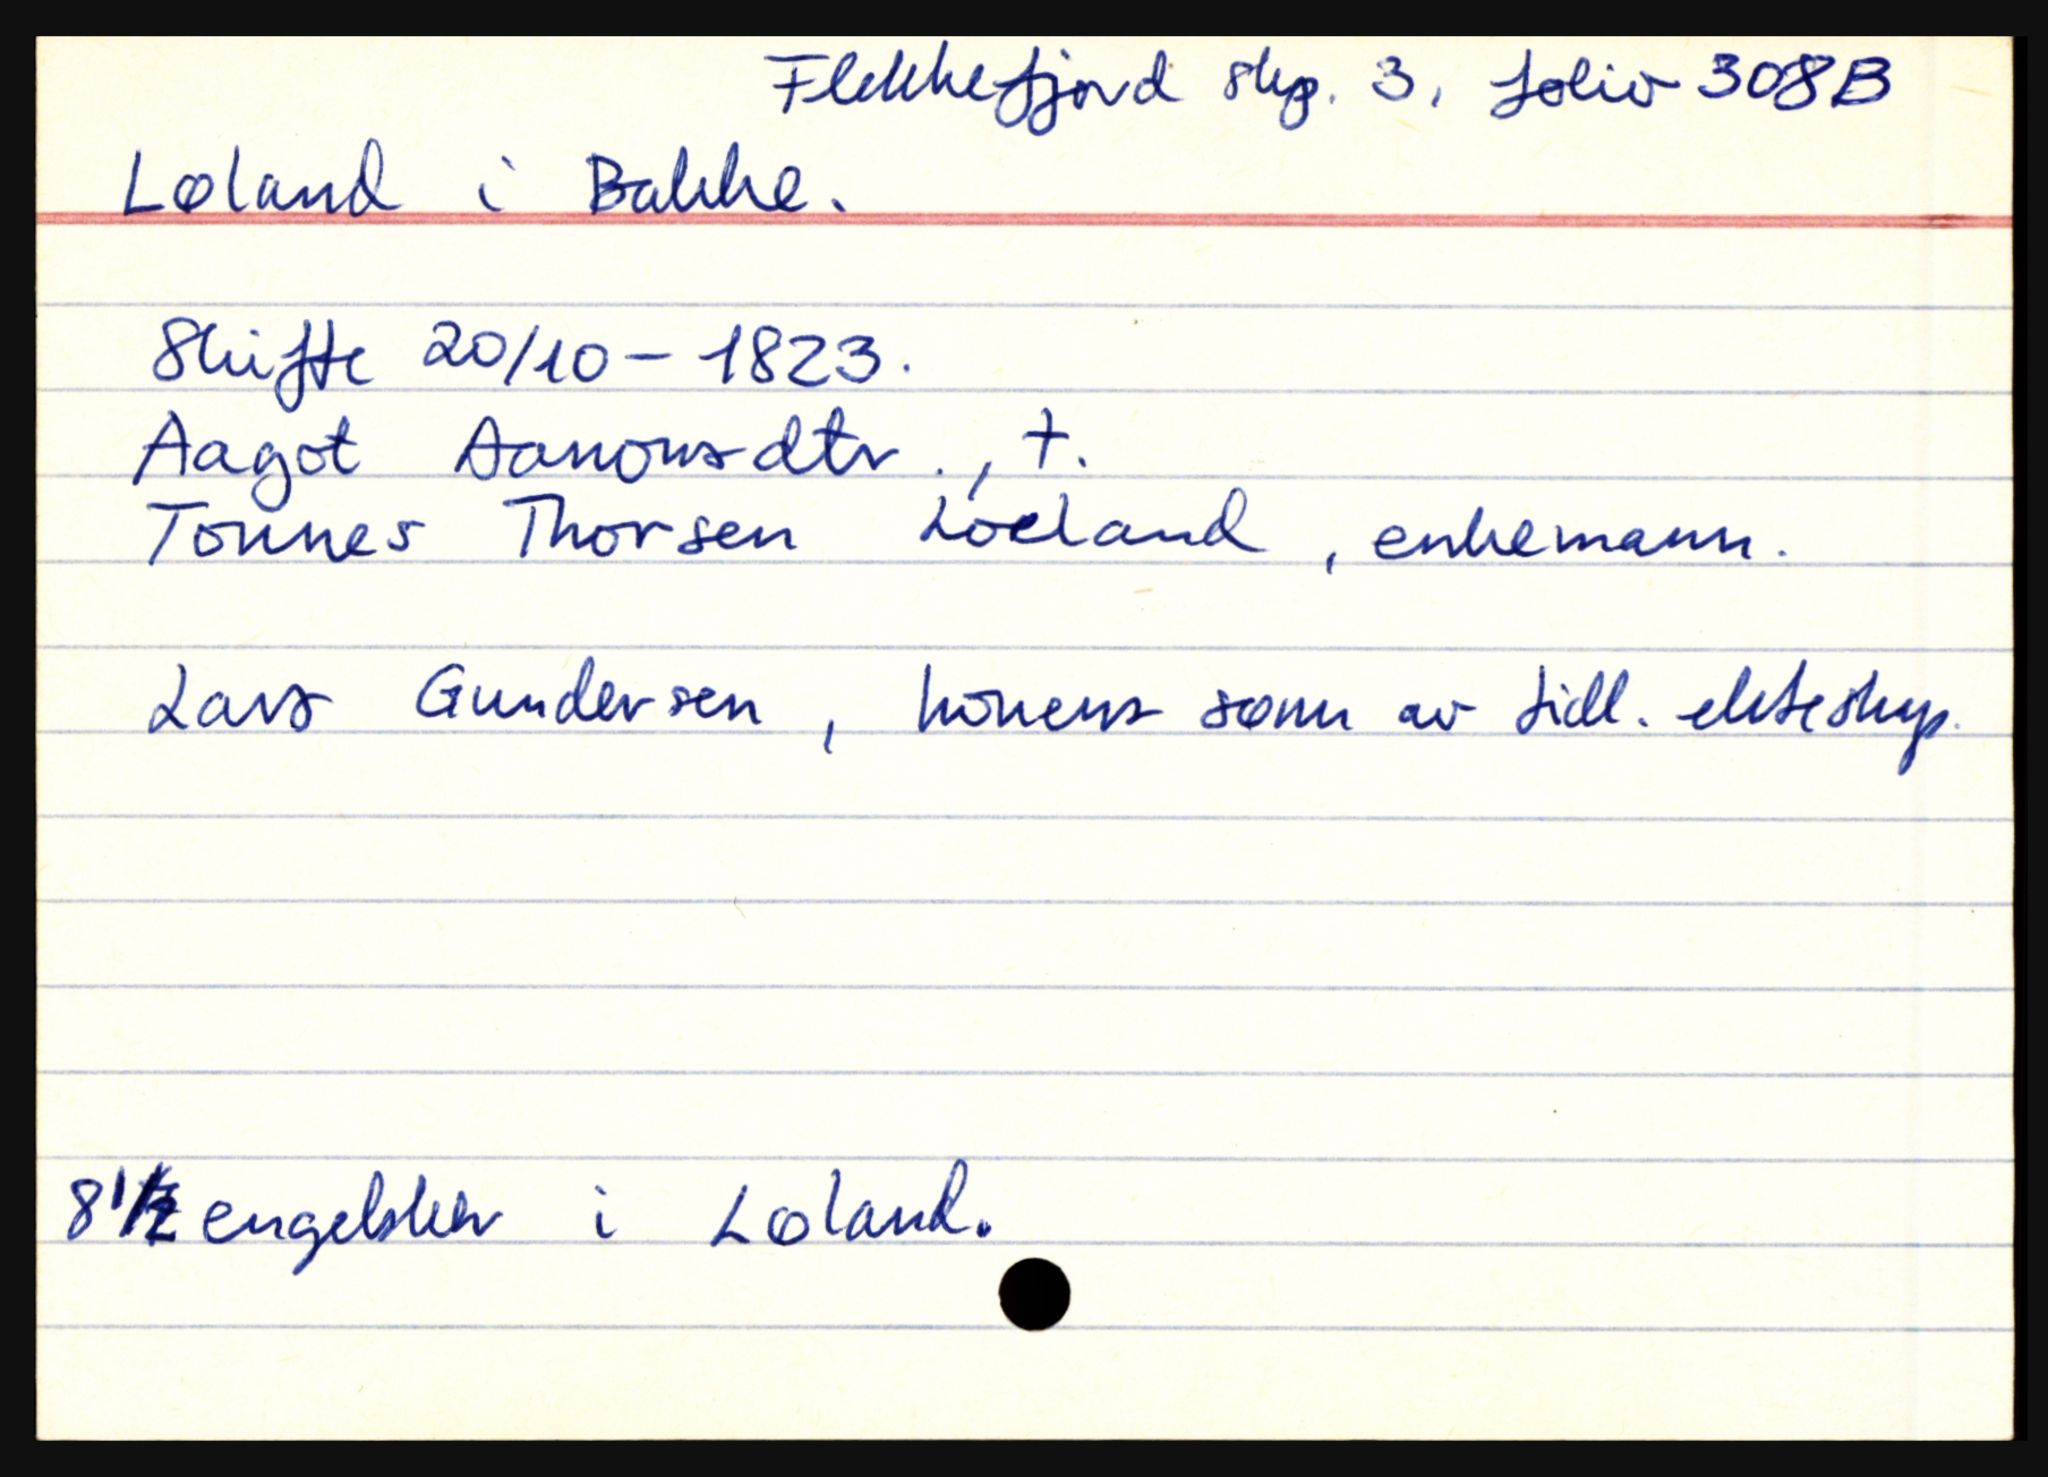 Flekkefjord skp. 3, folio 308B
Løland i Bakke.
Skifte 20/10 - 1823.
Aagot Aanonsdtr., †.
Tonnes Thorsen Loeland, enkemann.
Lars Gundersen, konens sønn av tidl. ekteskap.
8 1/2 engelsker i Løland.